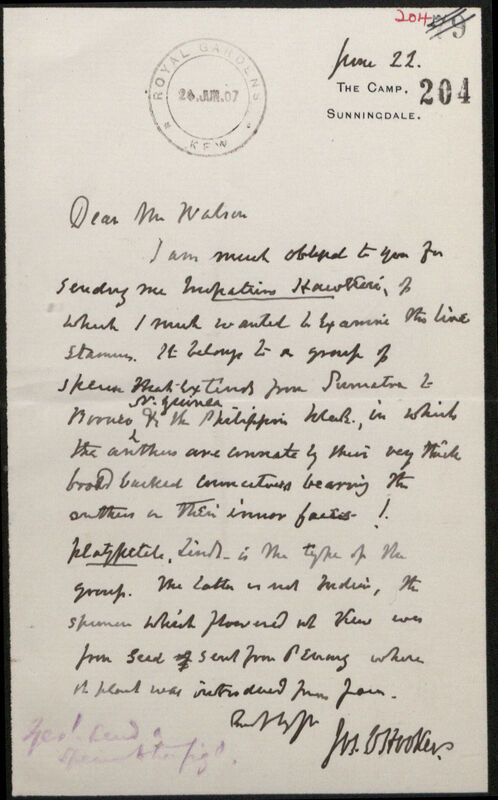 204 79
June 22.
THE CAMP. 204
SUNNINGDALE.
ROYAL GARDENS
26.JUN.07
KEW
Dear Mr Watson
I am much obliged to you for
sending me Impatiens Hawkeri, of
which I much wanted to examine the live
stamens. It belongs to a group of
species that extends from Sumatra to
N. Guinea
Borneo & the Philippine Islds., in which
the anthers are connate by their very thick
broad backed connectives bearing the
anthers on their inner faces !.
platypetala, Lindl. is the type of the
group. The latter is not Indian, the
specimen which flowered at Kew was
from seed sent from Penang where
it plant was introduced from Java.
Jos. D Hooker.
Yes! Send a
specimen